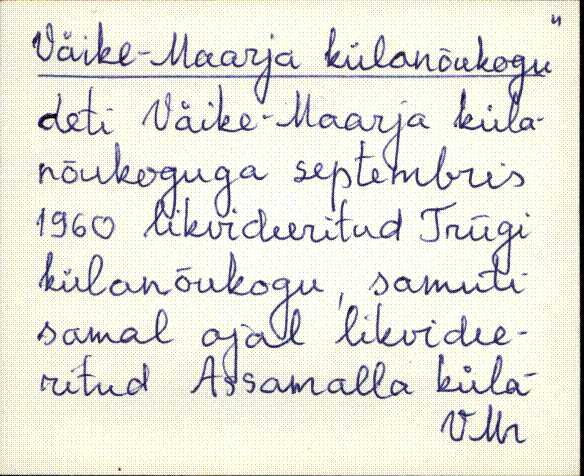 "
Väike-Maarja külanõukogu
deti Väike-Maarja küla-
nõukoguga septembris
1960 likvideeritud Triigi
külanõukogu, samuti
samal ajal likvidee-
ritud Assamalla küla-
VMr